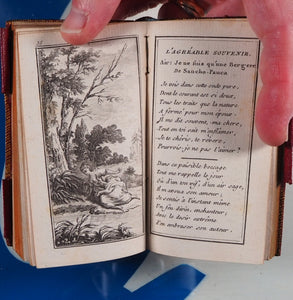 L'AGRÉABLE SOUVENIR.
Air: Je ne suis qu'une Bergere
De Sancho-Panca
Je vois dans cette onde pure,
Dont le courant est si doux,
Tous les traits que la nature
A formé pour mon époux:
Il me dit souvent, ma chere,
Tout en toi sait m'enflamer,
Je te chéris, te révere:
Pourrois-je ne pas l'aimer?
Dans ce paisible boccage
Tout me rappelle le jour
Où d'un ton vif, d'un air sage,
Il m'avoua son amour;
Je sentis à l'instant même
Un feu divin, enchanteur;
Avec le desir extrême
D'en embrasser son auteur,